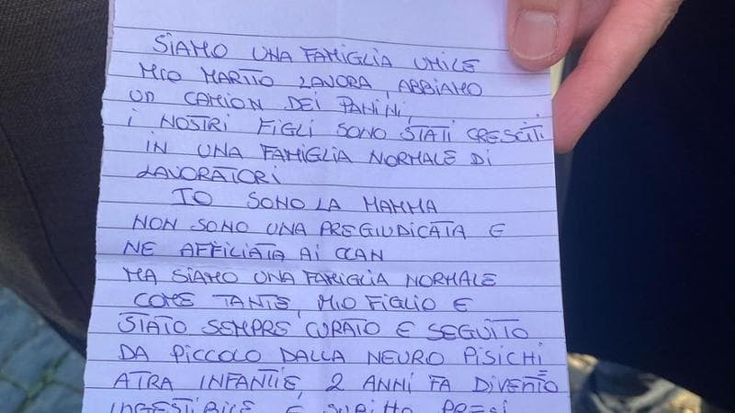 SIAMO UNA FAMIGLIA UMILE
MIO MARITO LAVORA, ABBIAMO
UN CAMION DEI PANINI,
I NOSTRI FIGLI SONO STATI CRESCITI
IN UNA FAMIGLIA NORMALE DI
LAVORATORI
IO SONO LA MAMMA
NON SONO UNA PREGIUDICATA E
NE AFFILIATA AI CLAN
MA SIAMO UNA FAMIGLIA NORMALE
COME TANTE, MIO FIGLIO E
STATO SEMPRE CURATO E SEGUITO
DA PICCOLO DALLA NEURO PISICHI
ATRA INFANTIE, 2 ANNI FA DIVENTO
INGESTIBILE E SUBITTO PRESI